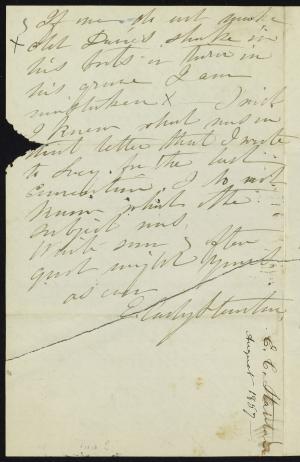 If we do not make
old Davies shake in
his boots or turn in
his grave I am
mistaken x I wish
I knew what was in
that letter that I wrote
to Lucy for the last
Convention, I do not
know what the
subject was,
Write soon & often
good night yours
as ever
E. Cady Stanton
E. C. Stanton
August 1857